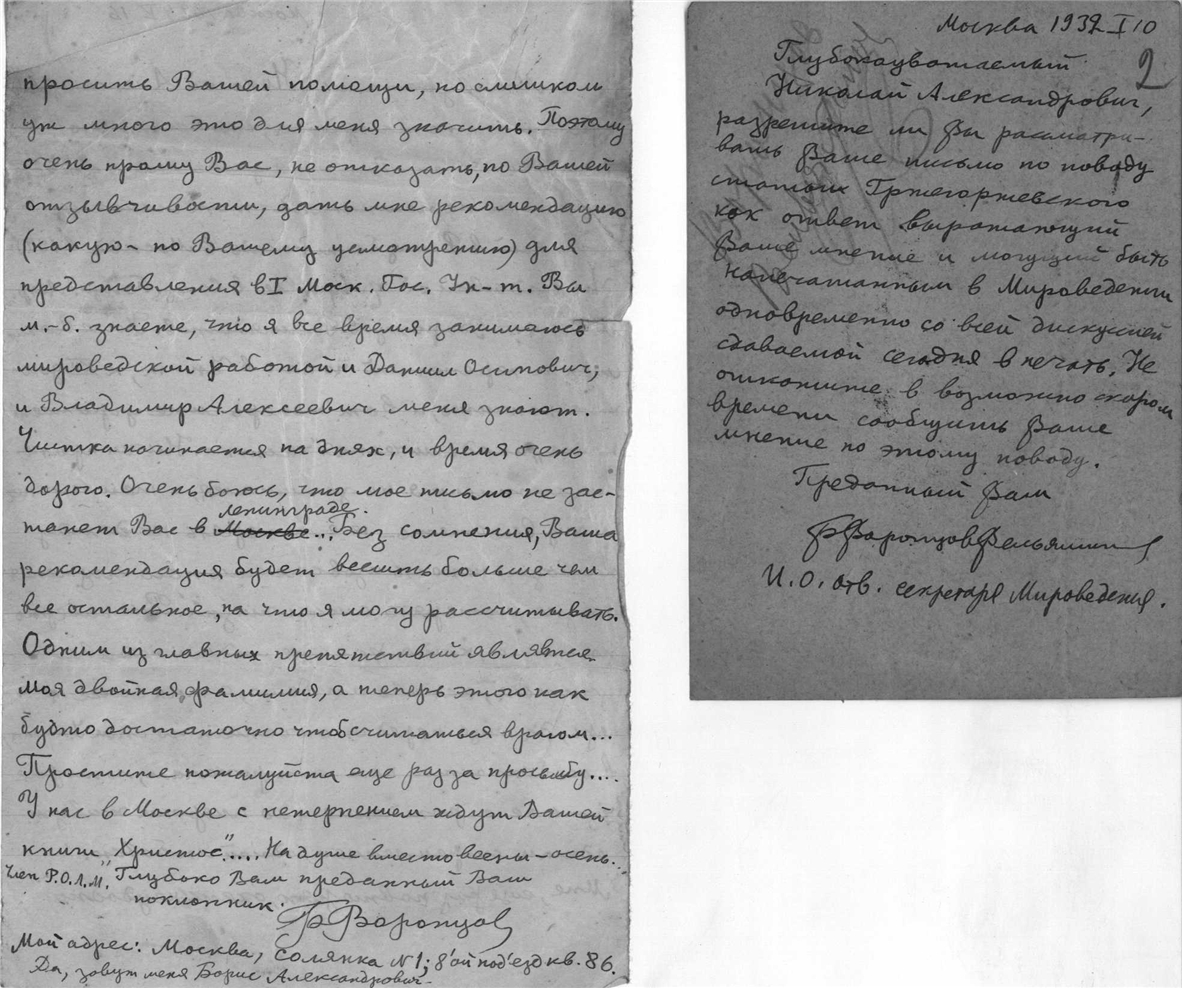 просить Вашей помощи, но слишком
уж много это для меня значить. Поэтому
очень прошу Вас, не отказать, по Вашей
отзывчивости, дать мне рекомендацию
(какую - по Вашему усмотрению) для
представления в I Моск. Гос. Ун-т. Вы
м.-б. знаете, что я все время занимаюсь
мироведской работой и Даниил Осипович,
и Владимир Алексеевич меня знают.
Чистка начинается на днях, и время очень
дорого. Очень боюсь, что мое письмо не зас-
ленинграде.
танет Вас в Москве... Без сомнения, Ваша
рекомендация будет весить больше чем
все остальное, на что я могу рассчитывать.
Одним из главных препятствий является
моя двойная фамилия, а теперь этого как
будто достаточно чтоб считаться врагом...
Простите пожалуйста еще раз за просьбу....
У нас в Москве с нетерпением ждут Вашей
книги „Христос".... На душе вместо весны - осень...
Член Р.О.Л.М. Глубоко Вам преданный Ваш
поклонник.
БВоронцов
Мой адрес: Москва, Солянка N1; 8'ой под'езд кв. 86.
Да, зовут меня Борис Александрович.
Москва 1932 I 10
2
Глубокоуважаемый
Николай Александрович,
разрешите ли Вы рассматри-
вать Ваше письмо по поводу
статьи Гржегоржевского
как ответ выражающий
Ваше мнение и могущий быть
напечатанным в Мироведении
одновременно со всей дискуссией
сдаваемой сегодня в печать. Не
откажите в возможно скором
времени сообщить Ваше
мнение по этому поводу.
Преданный Вам
БВоронцовВельяминов
И.О. отв. секретаря Мироведения.